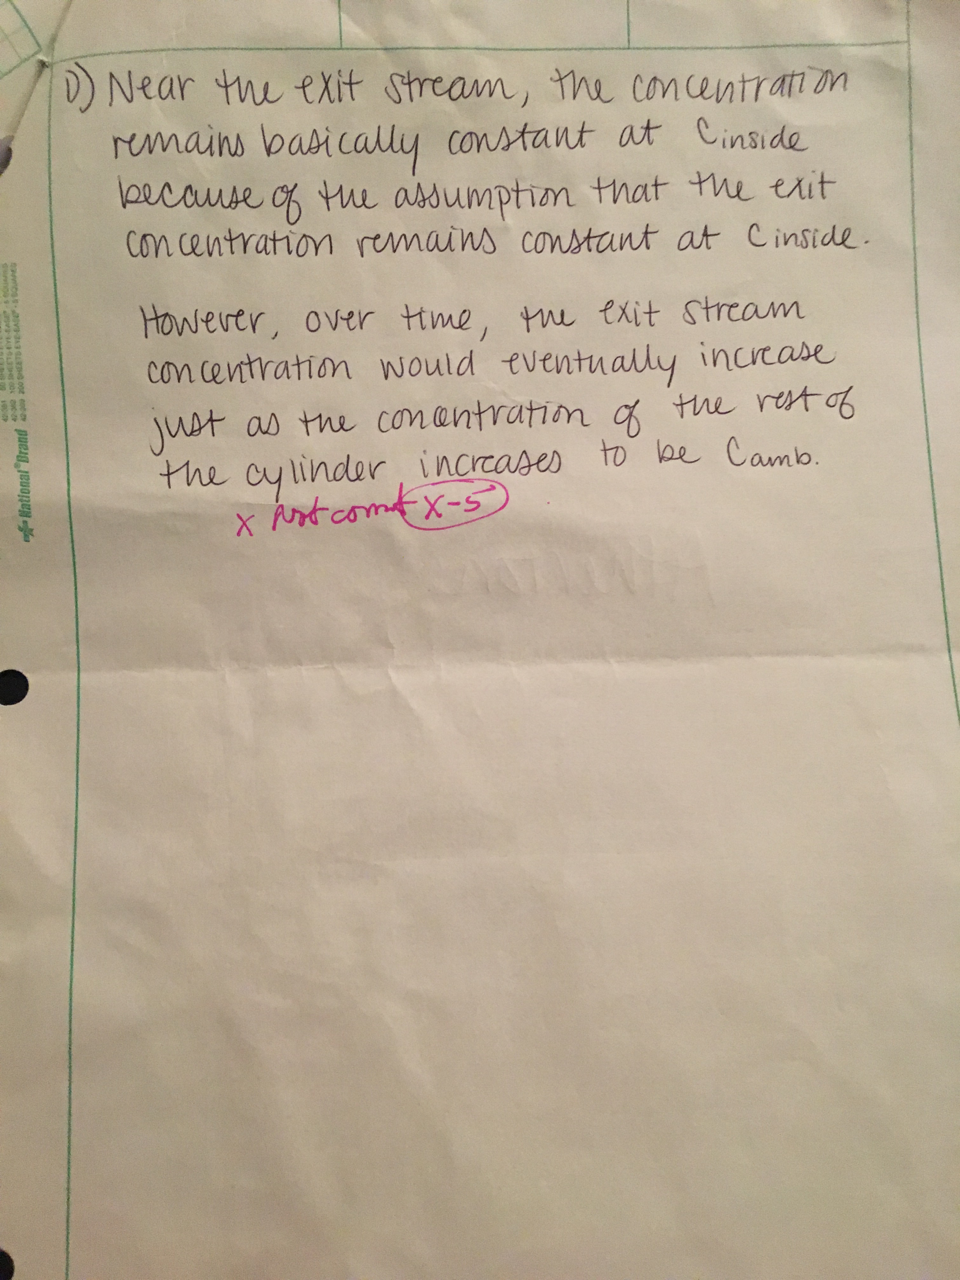 D) Near the exit stream, the concentration
remains basically constant at Cinside
because of the assumption that the exit
concentration remains constant at Cinside.
However, over time, the exit stream
concentration would eventually increase
just as the concentration of the rest of
the cylinder increases to be Camb.
x Not X-5
National Brand